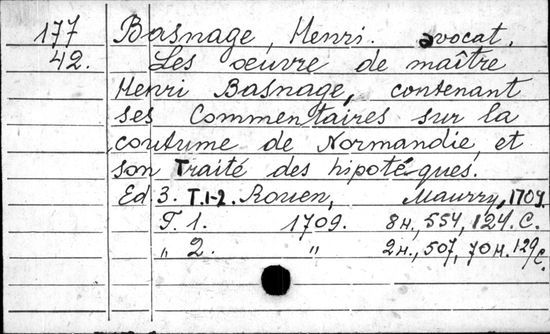 177 Basnage, Henri. avocat.
42. Les œuvre de maître
Henri Basnage, contenant
ses Commentaires sur la
coutume de Normandie, et
son Traité des hipotéques.
Ed 3. T.1-2. Rouen, Maurry, 1709.
T. 1. 1709. 8н., 554, 124. C.
„ 2. „ 2н., 507, 70н. 129/C.